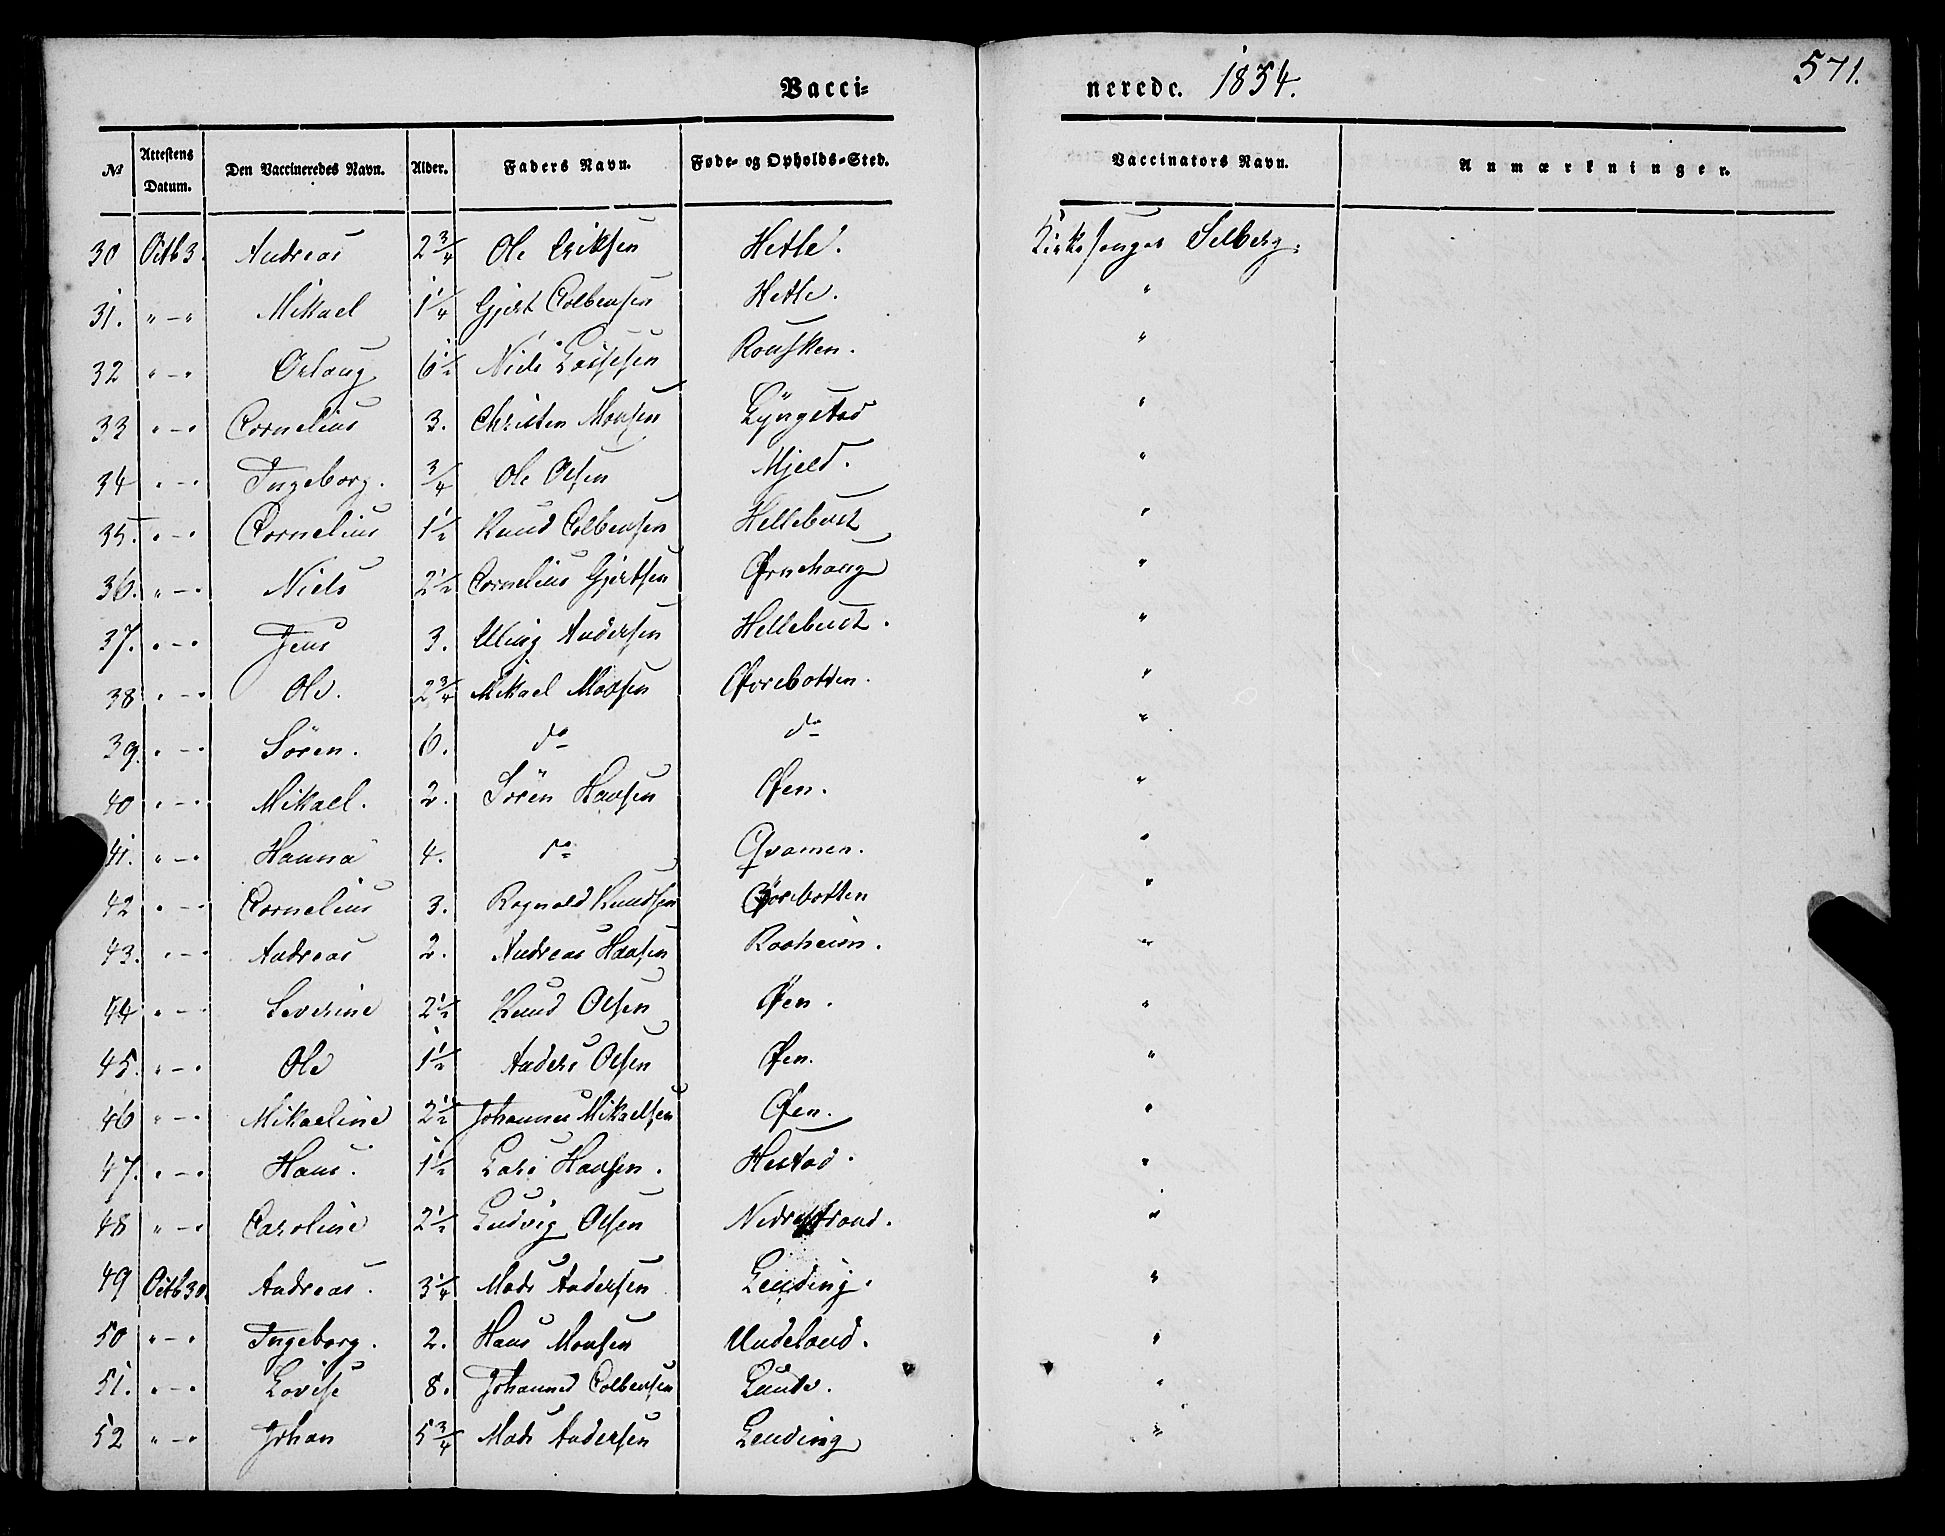 Vacci-
nerede. 1854.
571.
№ Attestens Datum. Den Vaccineredes Navn. Alder. Faders Navn. Føde- og Opholds-Sted. Vaccinators Navn. Anmærkninger.
30 Octb 3. Andreas 2 3/4 Ole Eriksen Hetle. Kirkesanger Selberg.
31. " - " Mikael 1 1/4 Gjert Colbensen Hetle. "
32 " - " 6 1/2 Niels Lassesen "
33 " - " Cornelius 3. Christen Monsen Lyngstad "
34 " - " Ingeborg. 3/4 Ole Olsen Mjeld. "
35. " - " Cornelius 1 1/2 Knud Colbensen Hellebust "
36. " - " Niels 2 1/2 Cornelius Gjertsen Ørnehoug "
37. " - " Jens 3. Elling Andersen Hellebust. "
38 " - " Ole. 2 3/4 Mikael Madsen Øvrebotten. "
39. " - " Søren. 6. do do "
40 " - " Mikael. 2. Søren Hansen Øen. "
41. " - " Hanna 4. do Qvamen. "
42 " - " Cornelius 3. Rognald Knudsen Øvrebotten "
43. " - " Andreas 2. Andreas Hansen Raaheim. "
44 " - " Severine 2 1/2 Knud Olsen Øen. "
45. " - " Ole 1 1/2 Anders Olsen Øen. "
46 " - " Mikaeline 2 1/2 Johannes Mikaelsen Øen. "
47. " - " Hans. 1 1/2 Lars Hansen. Hestad. "
48 " - " Caroline 2 1/2 Ludvig Olsen Nedrestrand. "
49 Octb 30. Andreas. 3 1/4 Mads Andersen Lending. "
50 " - " Ingeborg. 2. Hans Monsen Undeland. "
51. " - " Lovise 8. Johannes Colbensen Lunde. "
52 " - " Johan 5 3/4 Mads Andersen Lending "